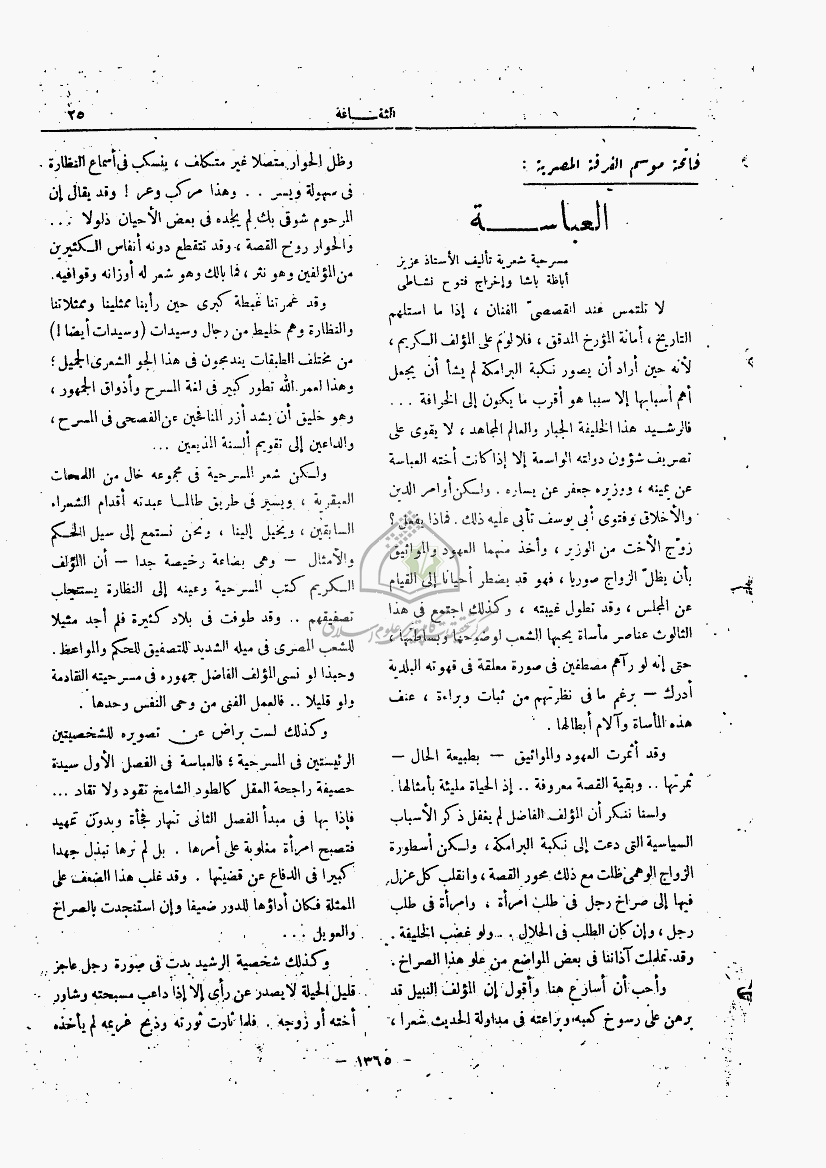 الثقافة
٢٥
فاتحة موسم الفرقة المصرية :
العباسة
مسرحية شعرية تأليف الأستاذ عزيز
أباظة باشا وإخراج فتوح نشاطى
لا تلتمس عند القصصىّ الفنان ، إذا ما استلهم
التاريخ ، أمانة المؤرخ المدقق ، فلا لوم على المؤلف الكريم ،
لأنه حين أراد أن يصور نكبة البرامكة لم يشأ أن يجعل
أهم أسبابها إلا سببا هو أقرب ما يكون إلى الخرافة ...
فالرشيد هذا الخليفة الجبار والعالم المجاهد ، لا يقوى على
تصريف شؤون دولته الواسعة إلا إذا كانت أخته العباسة
عن يمينه ، ووزيره جعفر عن يساره . ولكن أوامر الدين
والأخلاق وفتوى أبى يوسف تأبى عليه ذلك . فماذا يفعل ؟
زوّج الأخت من الوزير ، وأخذ منهما العهود والمواثيق
بأن يظلّ الزواج صوريا ، فهو قد يضطر أحيانا إلى القيام
عن المجلس ، وقد تطول غيبته ، وكذلك اجتمع فى هذا
الثالوث عناصر مأساة يحبها الشعب لوضوحها وبساطتها
حتى إنه لو رآهم مصطفين فى صورة معلقة فى قهوته البلدية
أدرك — برغم ما فى نظرتهم من ثبات وبراءة ، عنف
هذه المأساة وآلام أبطالها .
وقد أثمرت العهود والمواثيق — بطبيعة الحال —
ثمرتها .. وبقية القصة معروفة .. إذ الحياة مليئة بأمثالها .
ولسنا ننكر أن المؤلف الفاضل لم يغفل ذكر الأسباب
السياسية التى دعت إلى نكبة البرامكة ، ولكن أسطورة
الزواج الوهمى ظلت مع ذلك محور القصة ، وانقلب كل عزل
فيها إلى صراخ رجل فى طلب امرأة ، وامرأة فى طلب
رجل ، وإن كان الطلب فى الحلال ... ولو غضب الخليفة .
وقد تململت آذاننا فى بعض المواضع من علو هذا الصراخ .
وأحب أن أسارع هنا وأقول إن المؤلف النبيل قد
برهن على رسوخ كعبه وبراعته فى مداولة الحديث شعرا ،
وظل الحوار متصلا غير متكلف ، ينسكب فى أسماع النظارة
فى سهولة ويسر . . وهذا مركب وعر ! وقد يقال إن
المرحوم شوقى بك لم يجده فى بعض الأحيان ذلولا ...
والحوار روح القصة ، وقد تتقطع دونه أنفاس الكثيرين
من المؤلفين وهو نثر ، فما بالك وهو شعر له أوزانه وقوافيه .
وقد غمرتنا غبطة كبرى حين رأينا ممثلينا وممثلاتنا
والنظارة وهم خليط من رجال وسيدات (وسيدات أيضا !)
من مختلف الطبقات يندمجون فى هذا الجو الشعرى الجميل ؛
وهذا لعمر الله تطور كبير فى لغة المسرح وأذواق الجمهور ،
وهو خليق أن يشد أزر المنافحين عن الفصحى فى المسرح ،
والداعين إلى تقويم ألسنة المذيعين ...
ولكن شعر المسرحية فى مجموعه خال من اللمحات
العبقرية ، ويسير فى طريق طالما عبدته أقدام الشعراء
السابقين ، ويخيل إلينا ، ونحن نستمع إلى سيل الحكم
والأمثال — وهى بضاعة رخيصة جدا — أن المؤلف
الكريم كتب المسرحية وعينه إلى النظارة يستجلب
تصفيقهم .. وقد طوفت فى بلاد كثيرة فلم أجد مثيلا
للشعب المصرى فى ميله الشديد للتصفيق للحكم والمواعظ .
وحبذا لو نسى المؤلف الفاضل جمهوره فى مسرحيته القادمة
ولو قليلا .. فالعمل الفنى من وحى النفس وحدها .
وكذلك لست براض عن تصويره للشخصيتين
الرئيستين فى المسرحية ؛ فالعباسة فى الفصل الأول سيدة
حصيفة راجحة العقل كالطود الشامخ تقود ولا تقاد ...
فإذا بها فى مبدأ الفصل الثانى تنهار فجأة وبدون تمهيد
فتصبح امرأة مغلوبة على أمرها . بل لم نرها تبذل جهدا
كبيرا فى الدفاع عن قضيتها . وقد غلب هذا الضعف على
الممثلة فكان أداؤها للدور ضعيفا وإن استنجدت بالصراخ
والعويل ...
وكذلك شخصية الرشيد بدت فى صورة رجل عاجز
قليل الحيلة لا يصدر عن رأى إلا إذا داعب مسبحته وشاور
أخته أو زوجه . فلما ثارت ثورته وذبح غريمه لم يأخذه
— ١٣٦٥ —